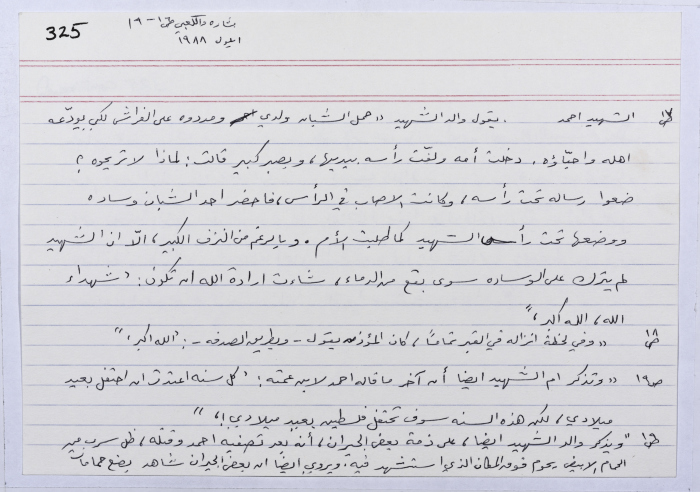 325
بشاره والكعبي ص ١ - ١٩
ايلول ١٩٨٨
ص ١٧ الشهيد احمد . يقول والد الشهيد " حمل الشبان ولدي ومددوه على الفراش لكي يودّعه
اهله واحبّاؤه. دخلت أمه ولفّت رأسه بيديها، وبصبر كبير قالت: لماذا لا تريحوه؟
ضعوا رساله تحت رأسه، وكانت الاصابه في الرأس، فاحضر احد الشبان وساده
ووضعها تحت رأس الشهيد كما طلبت الأم. وبالرغم من النزف الكبير، الاّ ان الشهيد
لم يترك على الوساده سوى بقع من الدماء، شاءت ارادة الله ان تكون: "شهداء
الله، الله أكبر"
ص ١٨ " وفي لحظة انزاله في القبر تماماً، كان المؤذن يقول - وبطريق الصدفه -: "الله اكبر"
ص ١٩ " وتذكر ام الشهيد ايضا أن آخر ما قاله احمد لابن عمته: "كل سنه اعتدت ان احتفل بعيد
ميلادي، لكن هذه السنه سوف تحتفل فلسطين بعيد ميلادي!"
ص ١٩ "ويذكر والد الشهيد ايضا، على ذمة بعض الجيران، أنه بعد تصفية احمد وقتله، ظل سرب من
الحمام الابيض يحوم فوق المكان الذي استشهد فيه. ويروي ايضا ان بعض الجيران شاهد بضع حمامات